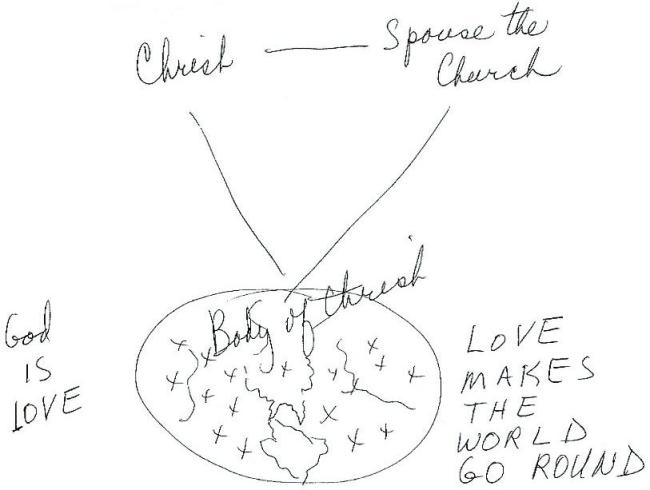 Christ
Spouse the
Church
Body of Christ
God
IS
LOVE
LOVE
MAKES
THE
WORLD
GO ROUND